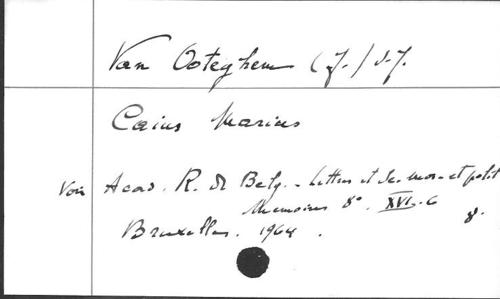 Van Ooteghem (J.) S.J.
Caius Marius
Voir Acad. R. de Belg. - Lettres et Sc. mor. et polit
Memoires 8°. XVI. 6
Bruxelles. 1964. 8.